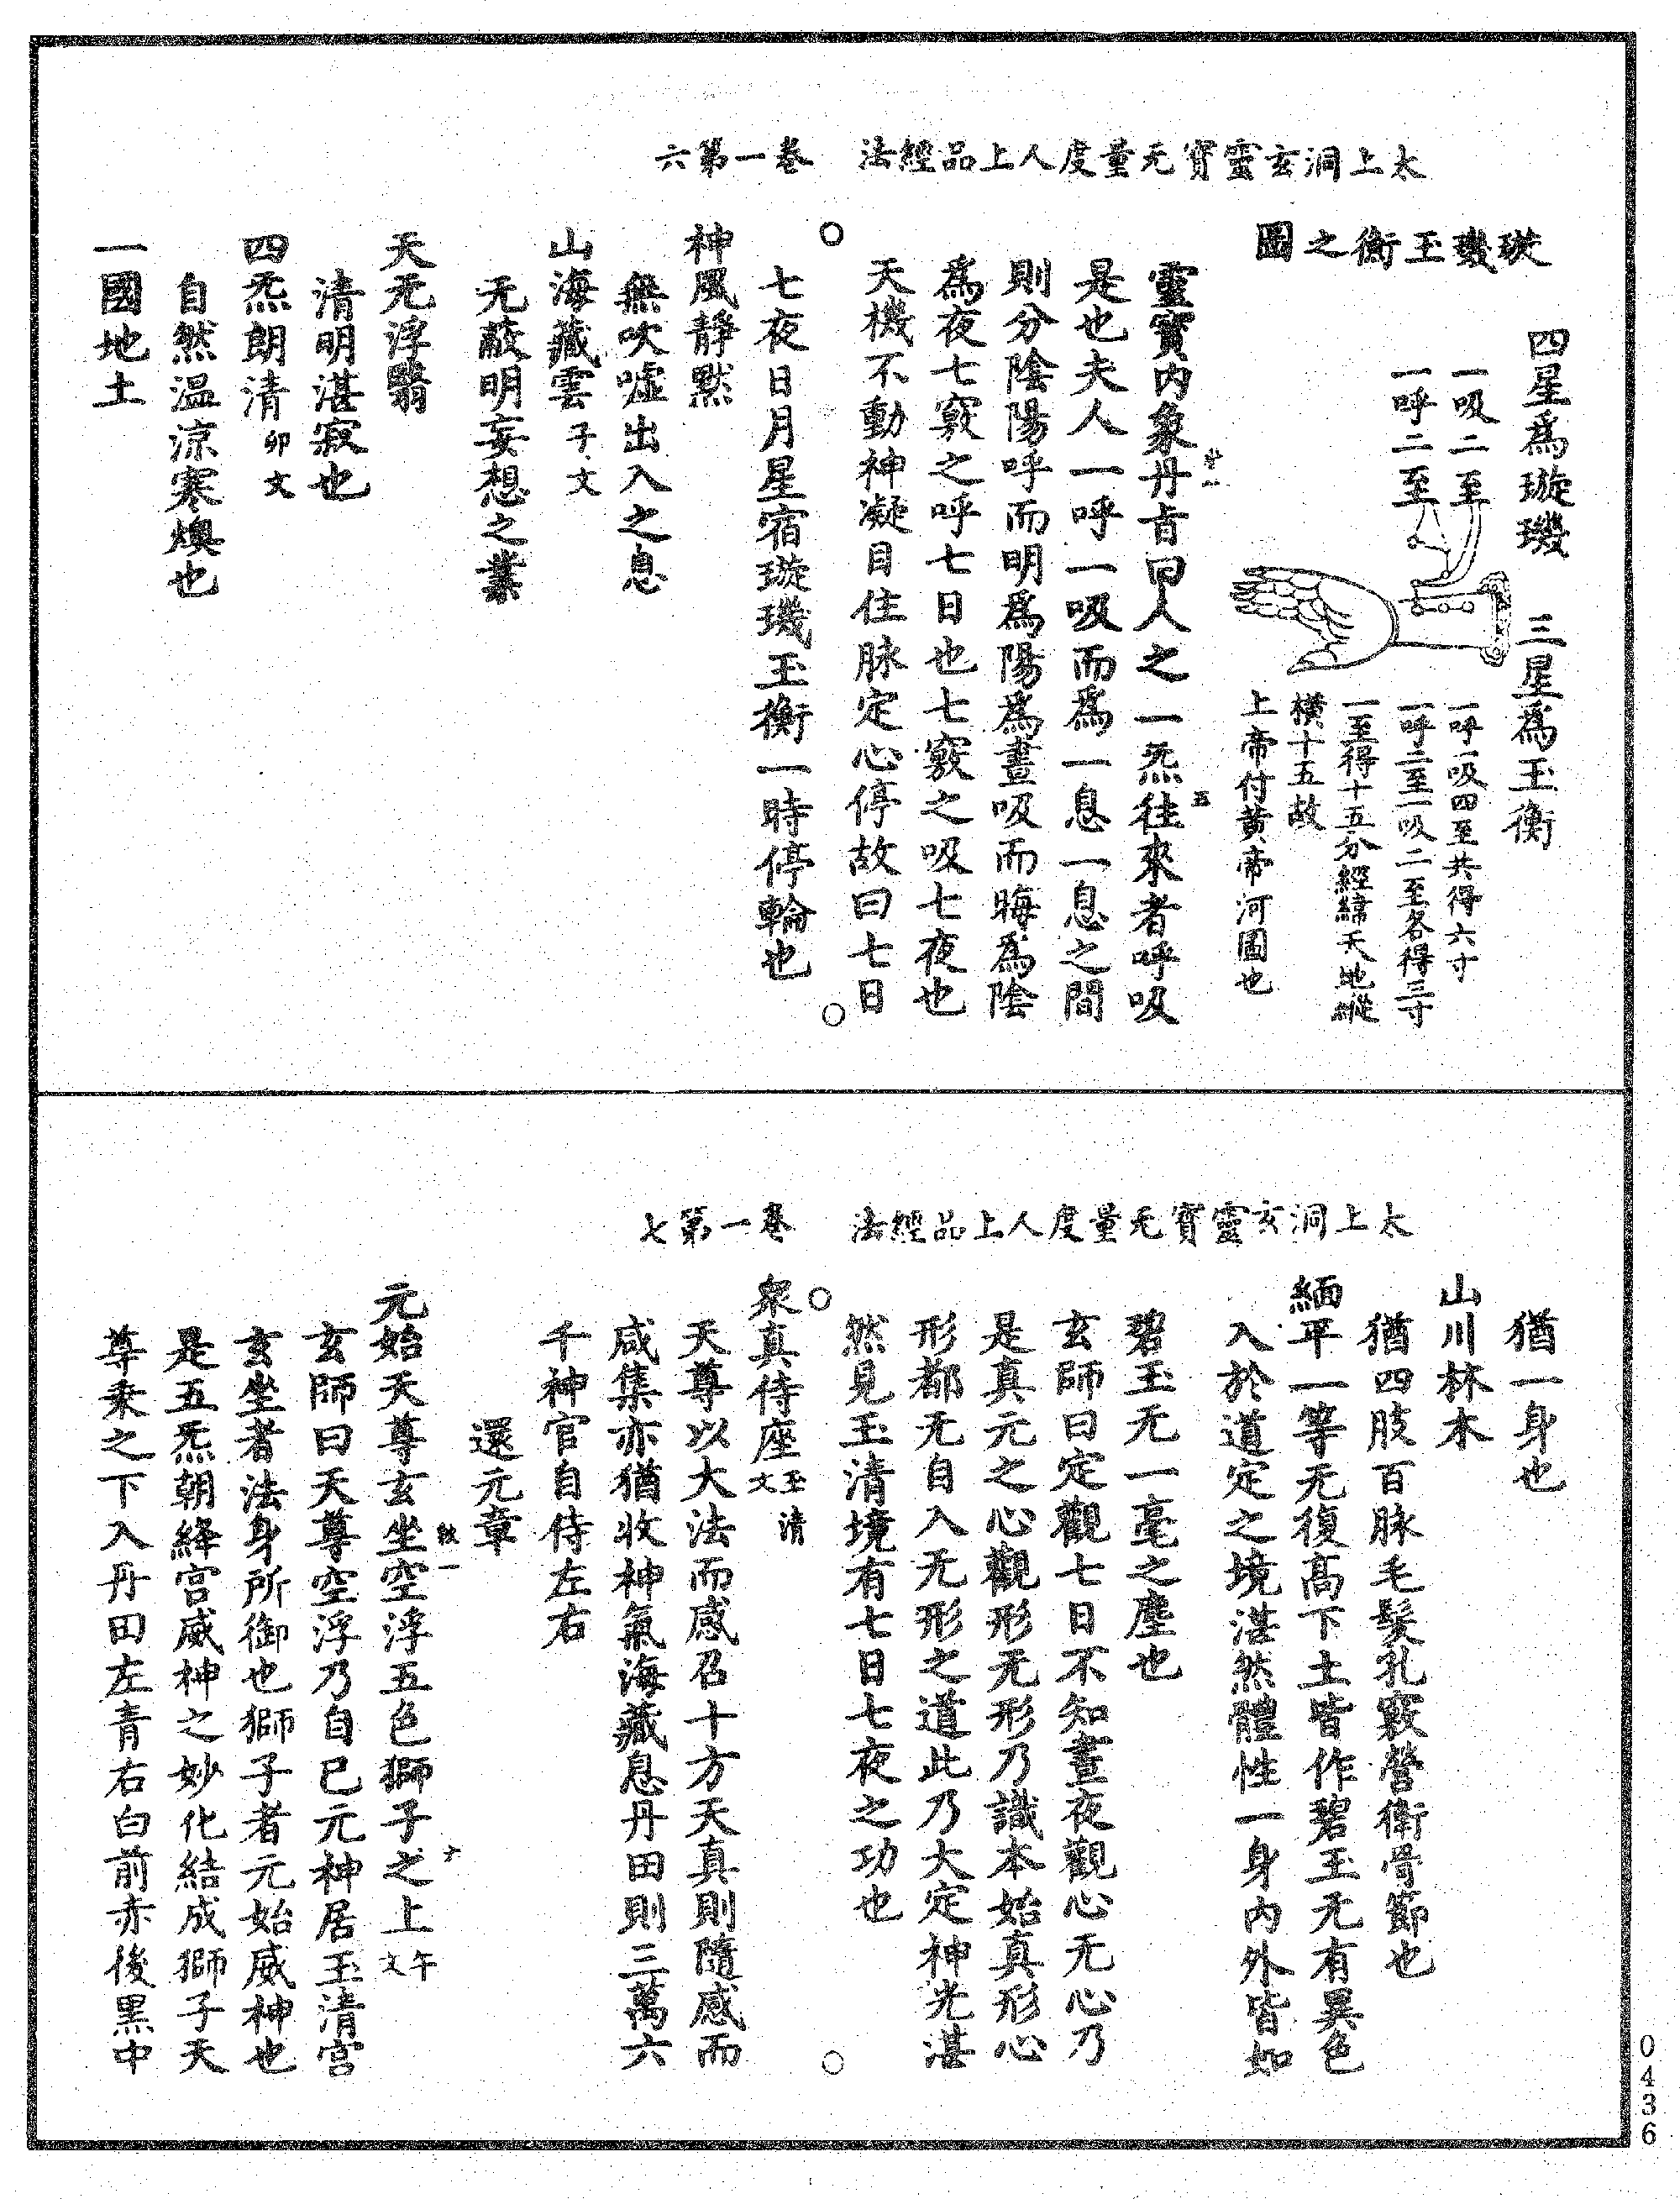 太上洞玄靈寶无量度人上品經法　卷一第六
璇璣玉衡之圖
四星爲璇璣　三星爲玉衡
一吸二至
一呼二至
一呼一吸四至共得六寸
一呼二至一吸二至各得三寸
一至得十五分經緯天地縱
橫十五故
上帝付黃帝河圖也
靈寶內象丹旨曰人之一炁往來者呼吸
是也夫人一呼一吸而爲一息一息之間
則分陰陽呼而明爲陽爲晝吸而晦爲陰
爲夜七竅之呼七日也七竅之吸七夜也
天機不動神凝目住脉定心停故曰七日
七夜日月星宿璇璣玉衡一時停輪也
神風靜默
無吹嘘出入之息
山海藏雲子文
无蔽明妄想之業
天无浮翳
清明湛寂也
四炁朗清卯文
自然溫涼寒燠也
一國地土
太上洞玄靈寶无量度人上品經法　卷一第七
猶一身也
山川林木
猶四肢百脉毛髮孔竅營衛骨節也
緬平一等无復髙下土皆作碧玉无有異色
入於道定之境湛然體性一身內外皆如
碧玉无一毫之塵也
玄師曰定觀七日不知晝夜觀心无心乃
是真元之心觀形无形乃識本始真形心
形都无自入无形之道此乃大定神光湛
然見玉清境有七日七夜之功也
衆真侍座玉清文
天尊以大法而感召十方天真則隨感而
咸集亦猶收神氣海藏息丹田則三萬六
千神官自侍左右
還元章
元始天尊玄坐空浮五色獅子之上午文
玄師曰天尊空浮乃自已元神居玉清宮
玄坐者法身所御也獅子者元始威神也
是五炁朝絳宮威神之妙化結成獅子天
尊乗之下入丹田左青右白前赤後黑中
0436